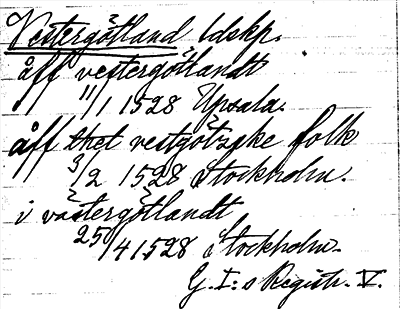 Vestergötland ldskp.
åff vestergötlandt
11/1 1528 Upsala.
åff thet vestgötzske folk
3/2 1528 Stockholm.
i västergötlandt
25/4 1528 Stockholm.
G. I:s Registr. V.